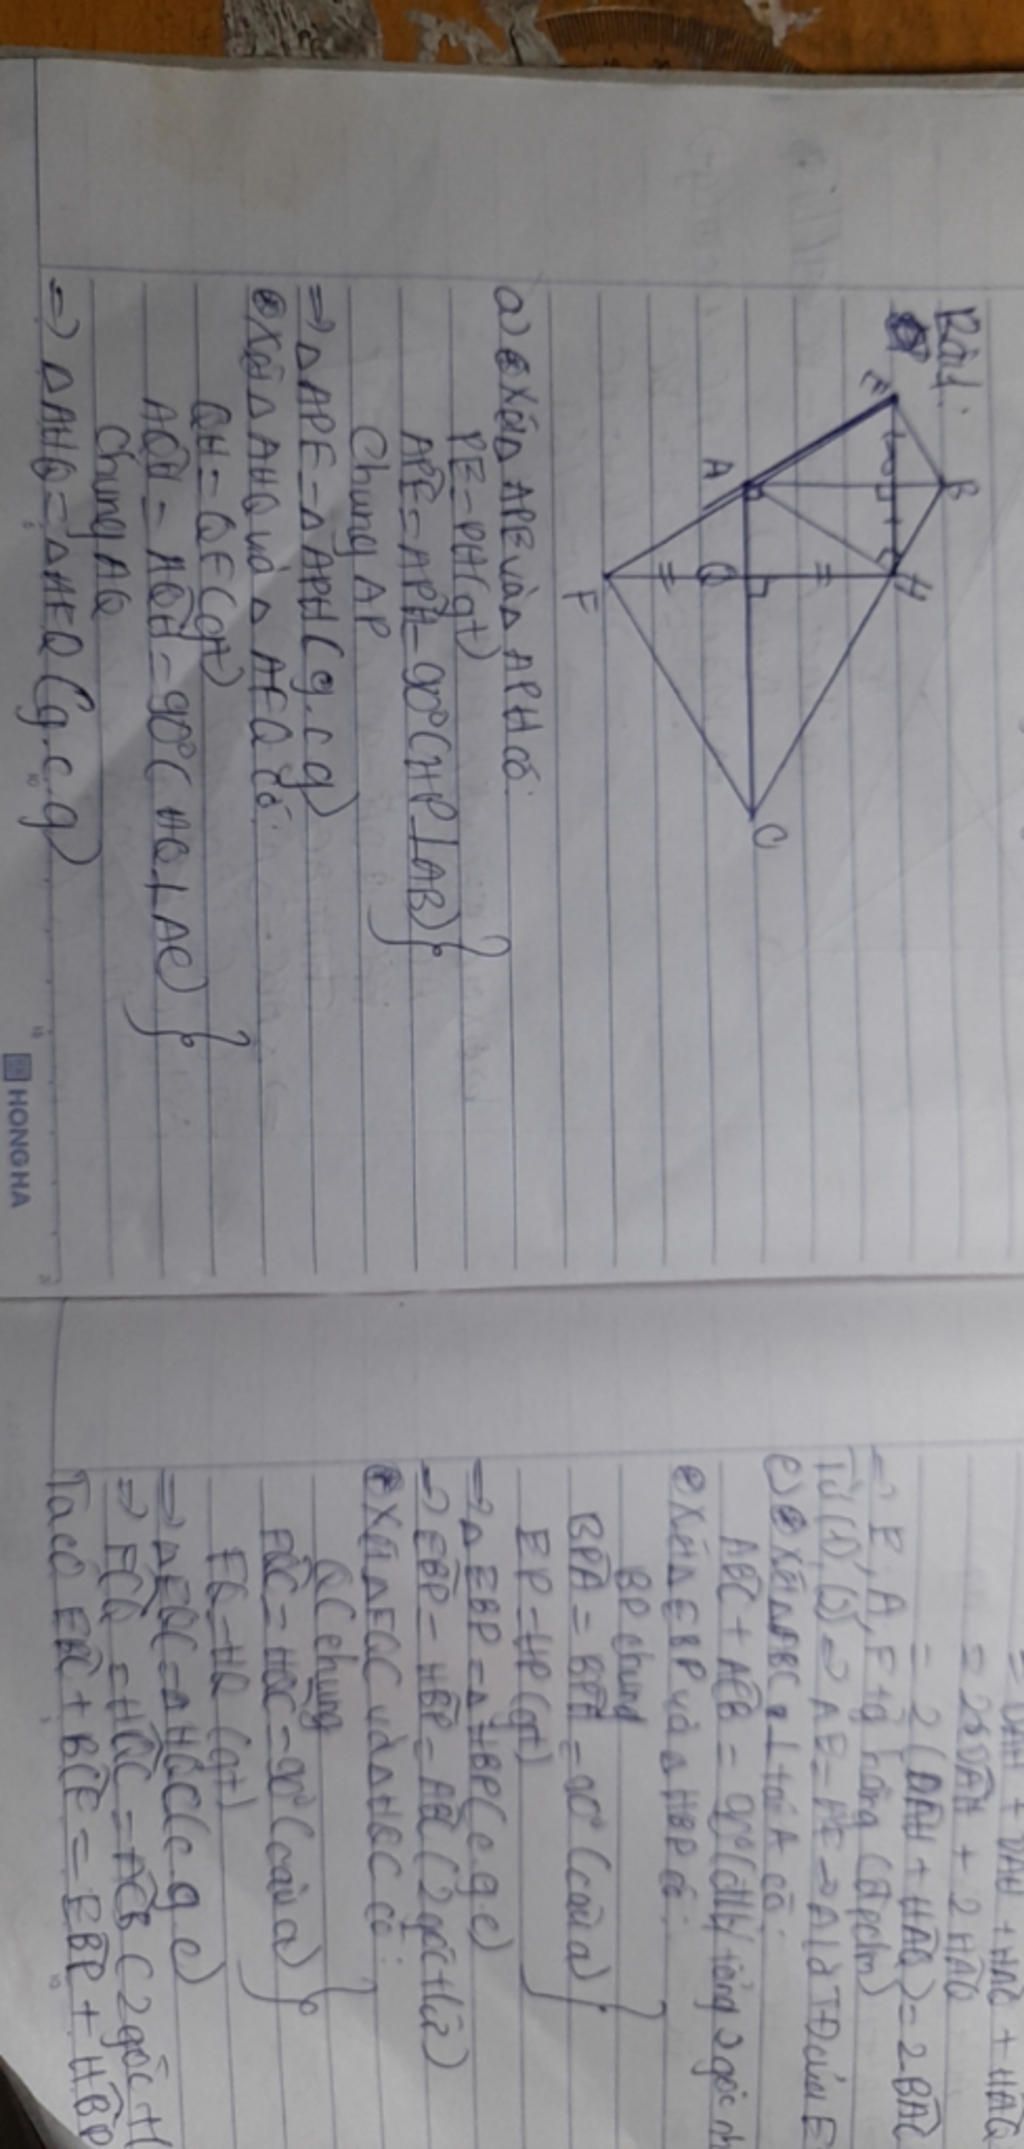 Bài 1:
E
B
H
A
Q
F
C
a) Xét Δ APE và Δ APH có:
PE = PH (gt)
APE = APH = 90° (HP ⊥ AB)
Chung AP
=> Δ APE = Δ APH (g.c.g)
Xét Δ AHQ và Δ AFQ có:
QH = QF (gt)
AQH = AQH = 90° (HQ ⊥ AC)
Chung AQ
=> Δ AHQ = Δ AFQ (g.c.g)
HONG HA
= DAH + DAH + HAQ + HAQ
= 2DAH + 2HAQ
= 2(DAH + HAQ) = 2.BAC
=> E, A, F hàng (đpcm)
Từ (1), (2) => AE = AF => A là TĐ của E
c) Xét Δ ABC ⊥ tại A có:
ABC + ACB = 90° (đlý tổng 3 góc
Xét Δ EBP và Δ HBP có:
BP chung
BPA = BPH = 90° (câu a)
EP = HP (gt)
=> Δ EBP = Δ HBP (c.g.c)
=> EBP = HBP = ABC (2 góc tứ)
Xét Δ FQC và Δ HQC có:
QC chung
FQC = HQC = 90° (câu a)
FQ = HQ (gt)
=> Δ FQC = Δ HQC (c.g.c)
=> FCQ = HQC = ACB (2 góc
Ta có EBC + BCF = EBP + HBP